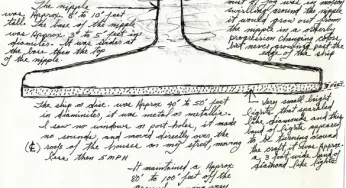 The nipple
was Approx. 8' to 10' feet
tall. The base of the nipple
was Approx 3' to 5' feet in
diameter. It was wider at
the base than the top
of the nipple
out of fog was in motion
swirling around the nipple
it would grow out from
the nipple in a orderly
progression changing colors,
but never growing past the
edge of the ship
2 feet
The ship or disc. was Approx 40' to 50' feet
in diameter, it was metal or metallic.
I saw no windows or port holes, it made
no sounds, and moved directly over the
roofs of the houses on my street, moving
less than 5 MPH
It maintained a Approx
80' to 100' feet off the
ground
Very small bright
lights that sparkled
like diamonds and this
band of lights appeared
to be moving around
the craft, it was Approx.
a 2 foot wide band of
diamond like lights